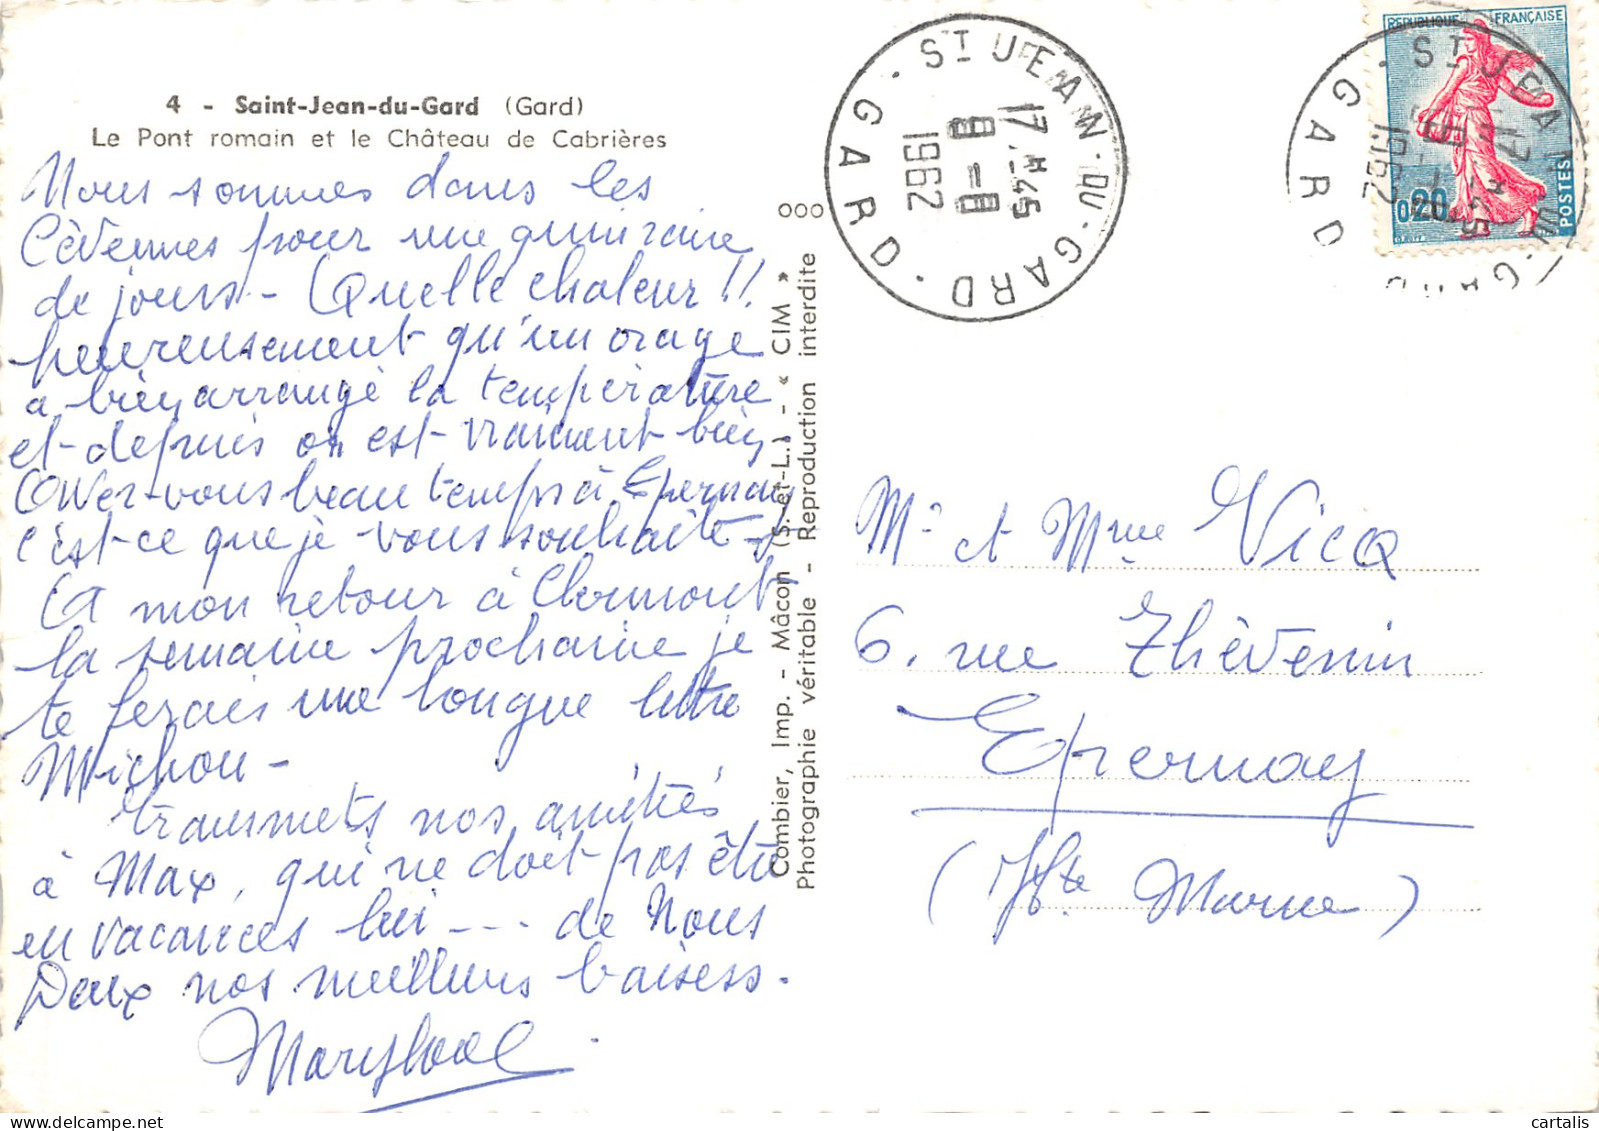 4 - Saint-Jean-du-Gard (Gard)
Le Pont romain et le Château de Cabrières
Nous sommes dans les
Cèvennes pour une quinzaine
de jours - Quelle chaleur !!
heureusement qu'un orage
a bien arrangé la température
et depuis on est vraiment bien
avez-vous beau temps à Epernay
c'est ce que je vous souhaite -
A mon retour à Clermont
la semaine prochaine je
te ferais une longue lettre
Michou -
Transmets nos amitiés
à Max, qui ne doit pas être
en vacances lui --- de Nous
Deux nos meilleurs baisers.
Combier, Imp. - Mâcon (S.-et-L.) - « CIM »
Photographie véritable - Reproduction interdite
ST JEAN-DU-GARD · GARD ·
17H 45
1962
REPUBLIQUE FRANÇAISE
0,20
POSTES
ST JEAN
GARD
1962
Mr et Mme Vicq
6, rue Thèvenin
Epernay
(Hte Marne)
cartalis